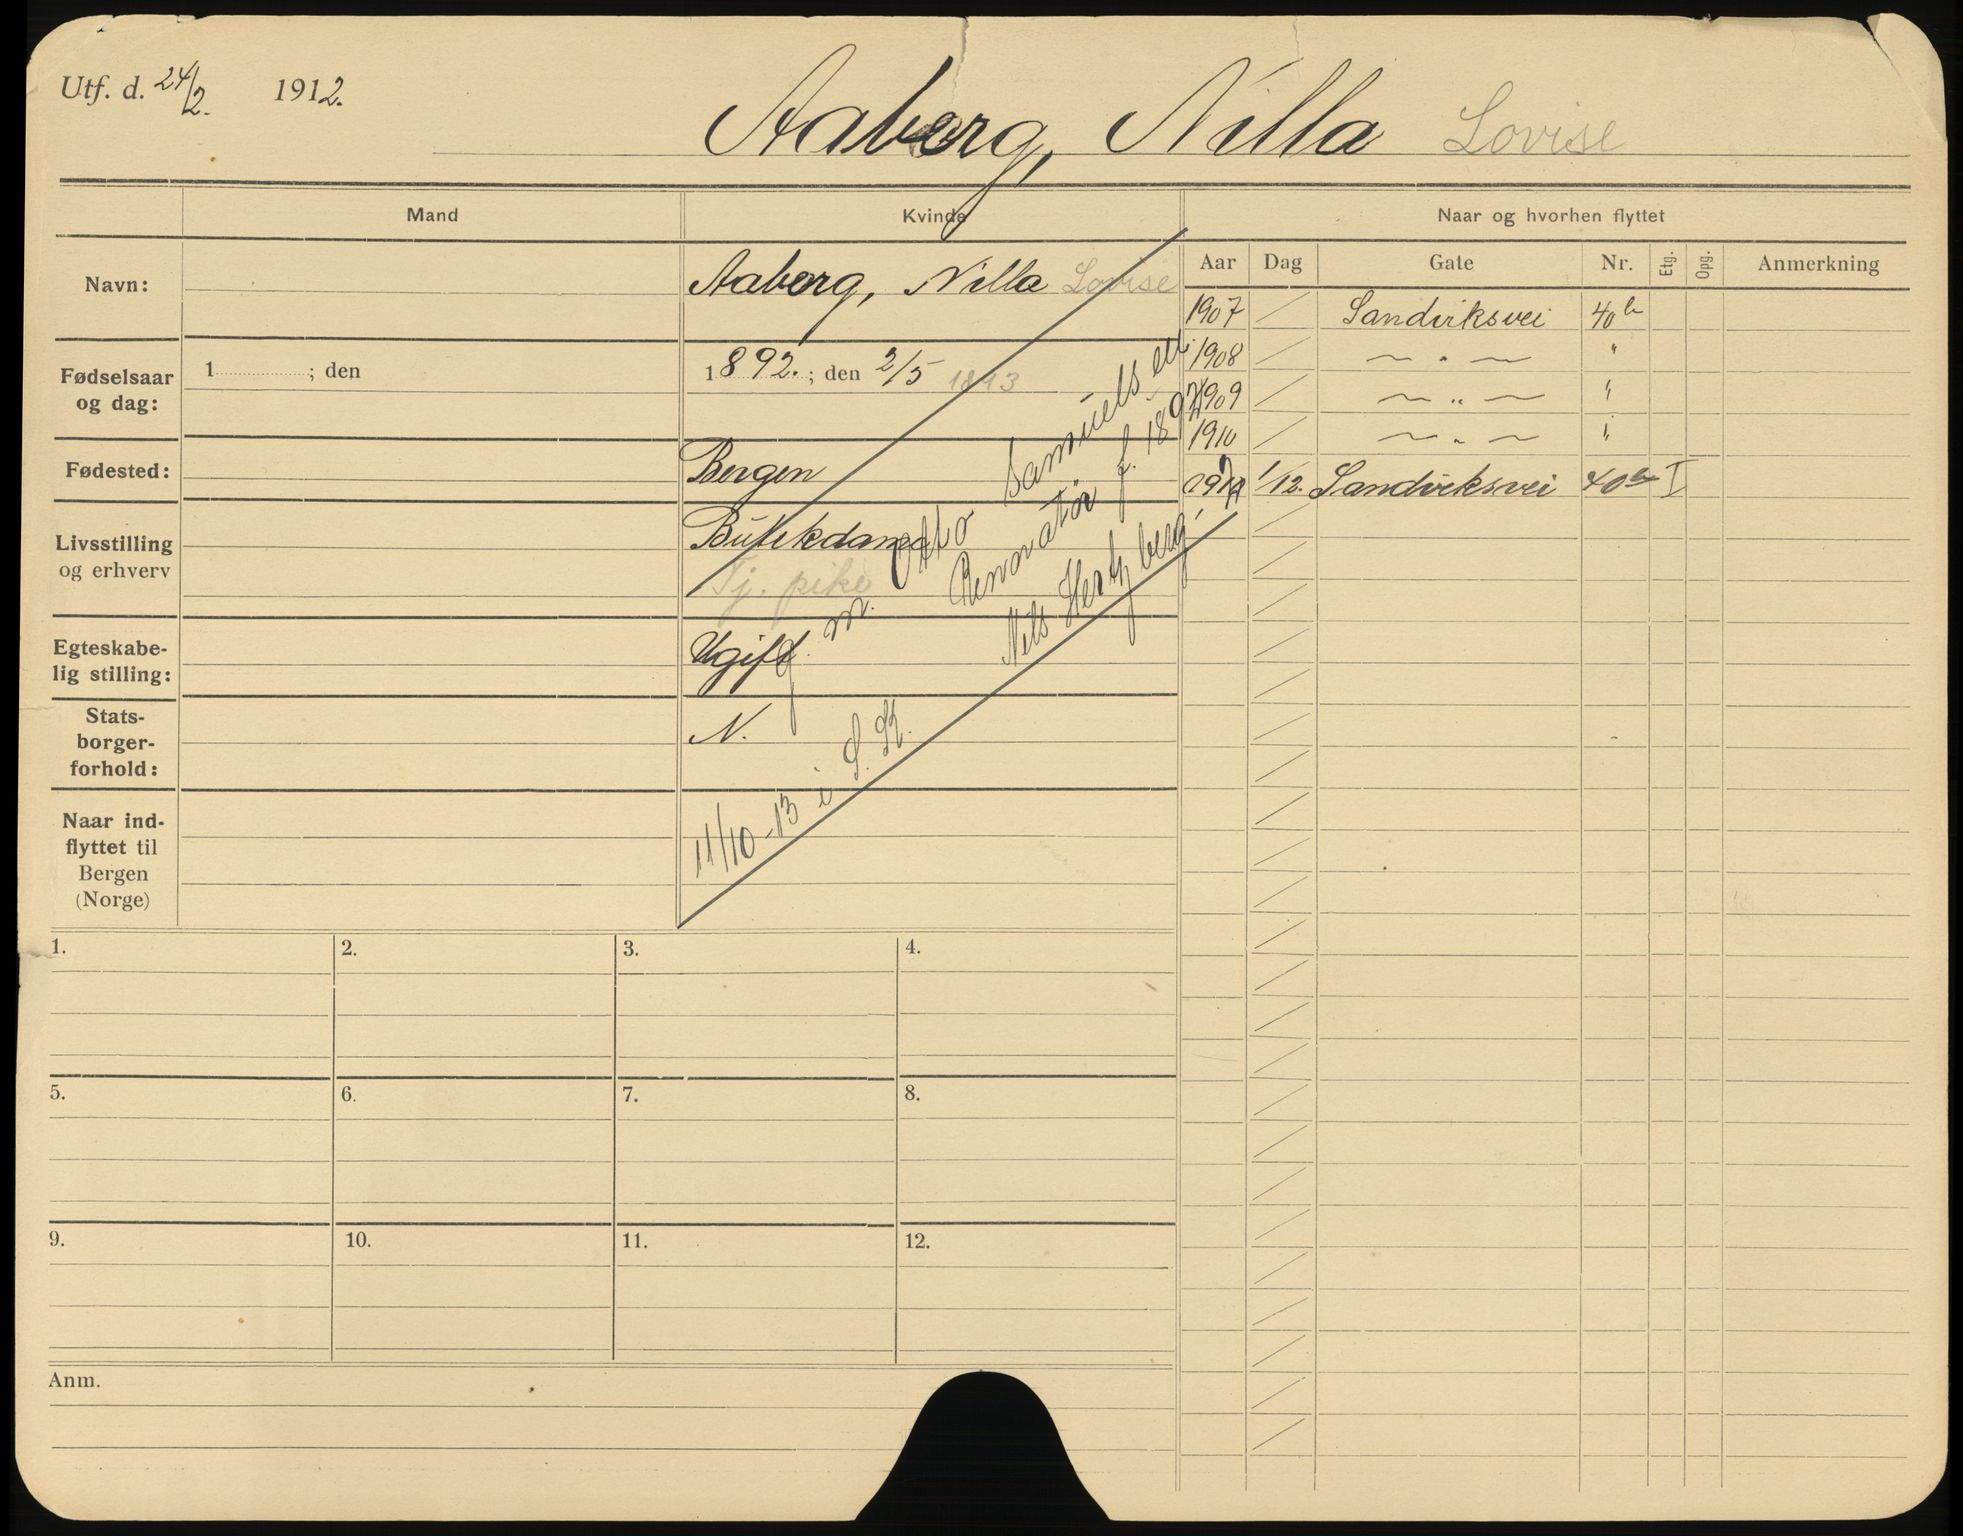 Utf. d. 24/2. 1912.
Aaberg, Nilla Lovise
Mand
Kvinde
Naar og hvorhen flyttet
Navn:
Aaberg, Nilla Lovise
Fødselsaar og dag:
1 ; den
1892. ; den 2/5 1893
Fødested:
Bergen
Livsstilling og erhverv
Butikdame
Tj. pike
Egteskabe-
lig stilling:
Ugift
Stats-
borger-
forhold:
N.
Naar ind-
flyttet til
Bergen
(Norge)
g. m. Otto Samuelsen
Renovatør f. 1892
Nils Hertzberg
11/10-13 i S. K.
Aar Dag Gate Nr. Etg. Opg. Anmerkning
1907 Sandviksvei 40 b
1908 — " — "
1909 — " — "
1910 — " — "
1/12. Sandviksvei 40 b I
1. 2. 3. 4.
5. 6. 7. 8.
9. 10. 11. 12.
Anm.